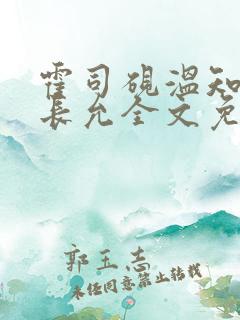 霍司砚温知
长允全文免
郭玉志
未经同意禁止转载